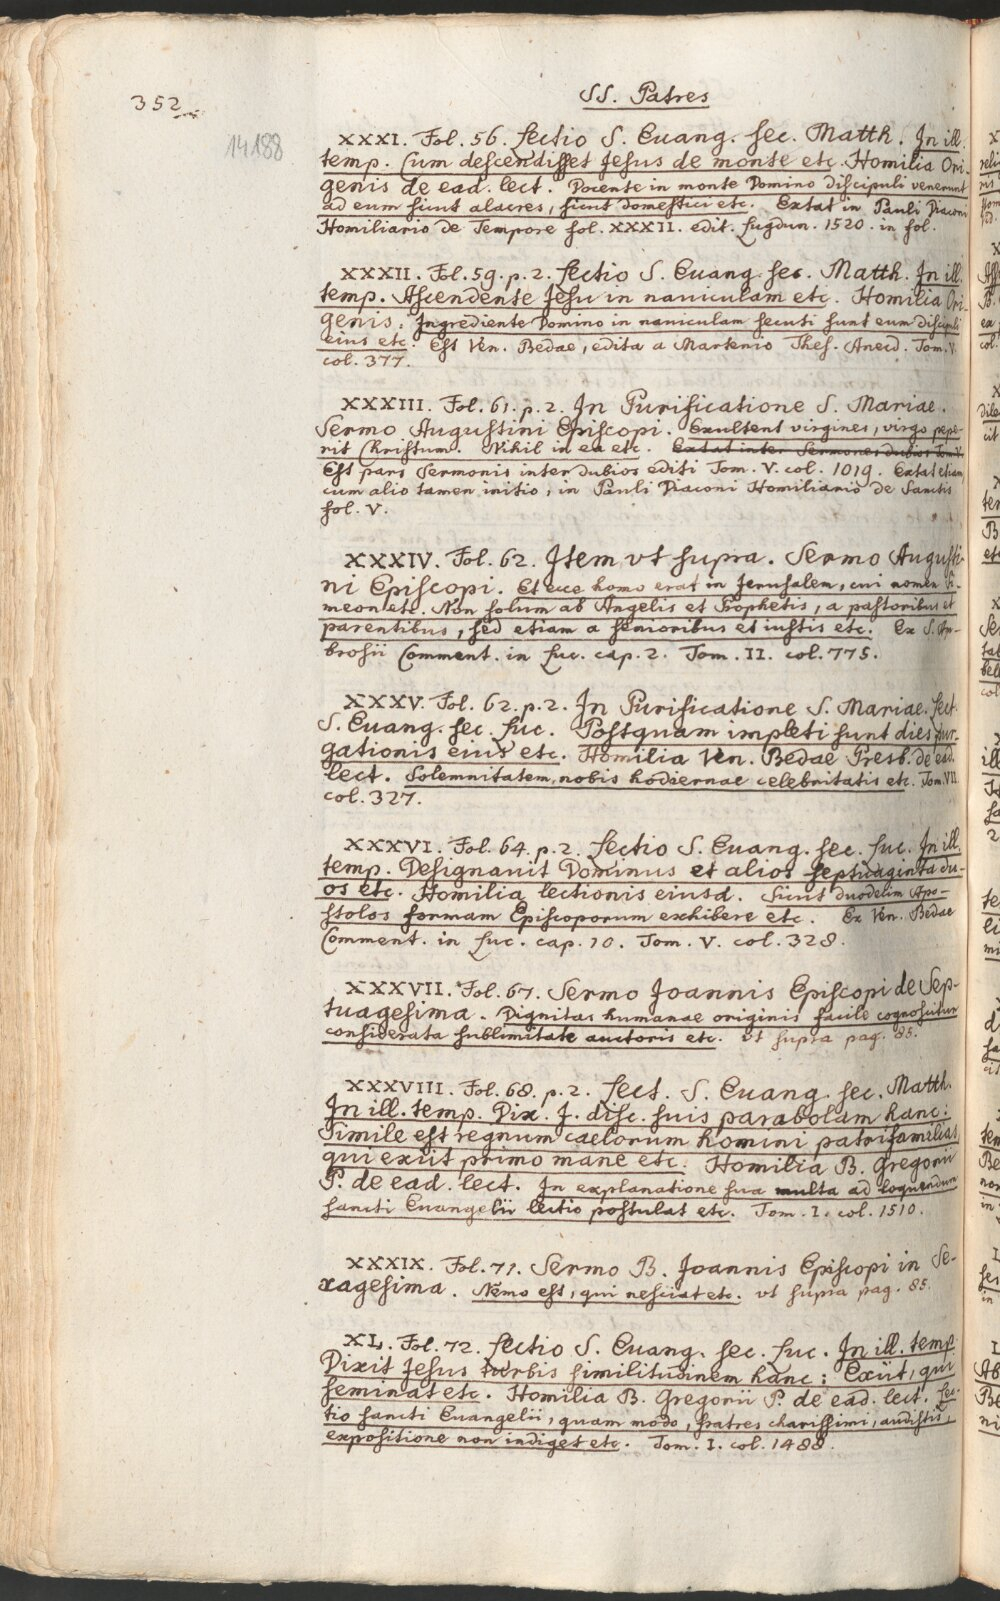 352
SS. Patres
14188
XXXI. Fol. 56. Lectio S. Euang. sec. Matth. In ill.
temp. Cum descendisset Jesus de monte etc. Homilia Ori-
genis de ead. lect. Docente in monte Domino discipuli venerunt
ad eum sicut alacres, sicut domestici etc. Extat in Pauli Diaconi
Homiliario de Tempore fol. XXXII. edit. Lugdun. 1520. in fol.
XXXII. Fol. 59. p. 2. Lectio S. Euang. sec. Matth. In ill.
temp. Ascendente Jesu in nauiculam etc. Homilia Ori-
genis. Ingrediente Domino in nauiculam secuti sunt eum discipuli
eius etc. Est Ven. Bedae, edita a Martenio Thes. Anecd. Tom. V.
col. 377.
XXXIII. Fol. 61. p. 2. In Purificatione S. Mariae.
Sermo Augustini Episcopi. Exultent virgines, virgo pepe-
rit Christum. Nihil in ea etc. Extat inter Sermones dubios Tom. V.
Est pars Sermonis inter dubios editi Tom. V. col. 1019. Extat etiam
cum alio tamen initio, in Pauli Diaconi Homiliario de Sanctis
fol. V.
XXXIV. Fol. 62. Item vt supra. Sermo Augusti-
ni Episcopi. Et ecce homo erat in Jerusalem, cui nomen Si-
meon etc. Non solum ab Angelis et Prophetis, a pastoribus et
parentibus, sed etiam a senioribus et iustis etc. Ex S. Am-
brosii Comment. in Luc. cap. 2. Tom. II. col. 775.
XXXV. Fol. 62. p. 2. In Purificatione S. Mariae. Lect.
S. Euang. sec. Luc. Postquam impleti sunt dies pur-
gationis eius etc. Homilia Ven. Bedae Presb. de ead.
lect. Solemnitatem nobis hodiernae celebritatis etc. Tom. VII.
col. 327.
XXXVI. Fol. 64. p. 2. Lectio S. Euang. sec. Luc. In ill.
temp. Designauit Dominus et alios septuaginta du-
os etc. Homilia lectionis eiusd. Sicut duodecim Apo-
stolos formam Episcoporum exhibere etc. Ex Ven. Bedae
Comment. in Luc. cap. 10. Tom. V. col. 328.
XXXVII. Fol. 67. Sermo Joannis Episcopi de Sep-
tuagesima. Dignitas humanae originis facile cognoscitur
considerata sublimitate auctoris etc. vt supra pag. 85.
XXXVIII. Fol. 68. p. 2. Lect. S. Euang. sec. Matth.
In ill. temp. Dix. J. disc. suis parabolam hanc:
Simile est regnum caelorum homini patrifamilias
qui exiit primo mane etc. Homilia B. Gregorii
P. de ead. lect. In explanatione sua multa ad loquendum
sancti Euangelii lectio postulat etc. Tom. I. col. 1510.
XXXIX. Fol. 71. Sermo B. Joannis Episcopi in Se-
xagesima. Nemo est, qui nesciat etc. vt supra pag. 85.
XL. Fol. 72. Lectio S. Euang. sec. Luc. In ill. temp.
Dixit Jesus turbis similitudinem hanc: Exiit, qui
seminat etc. Homilia B. Gregorii P. de ead. lect. Lec-
tio sancti Euangelii, quam modo, fratres charissimi, audistis,
expositione non indiget etc. Tom. I. col. 1488.